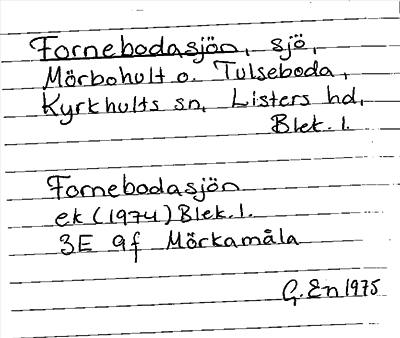 Fornebodasjön, sjö,
Mörbohult o. Tulseboda,
Kyrkhults sn, Listers hd,
Blek. l.
Fornebodasjön
ek (1974) Blek. l.
3E 9f Mörkamåla
G. En 1975